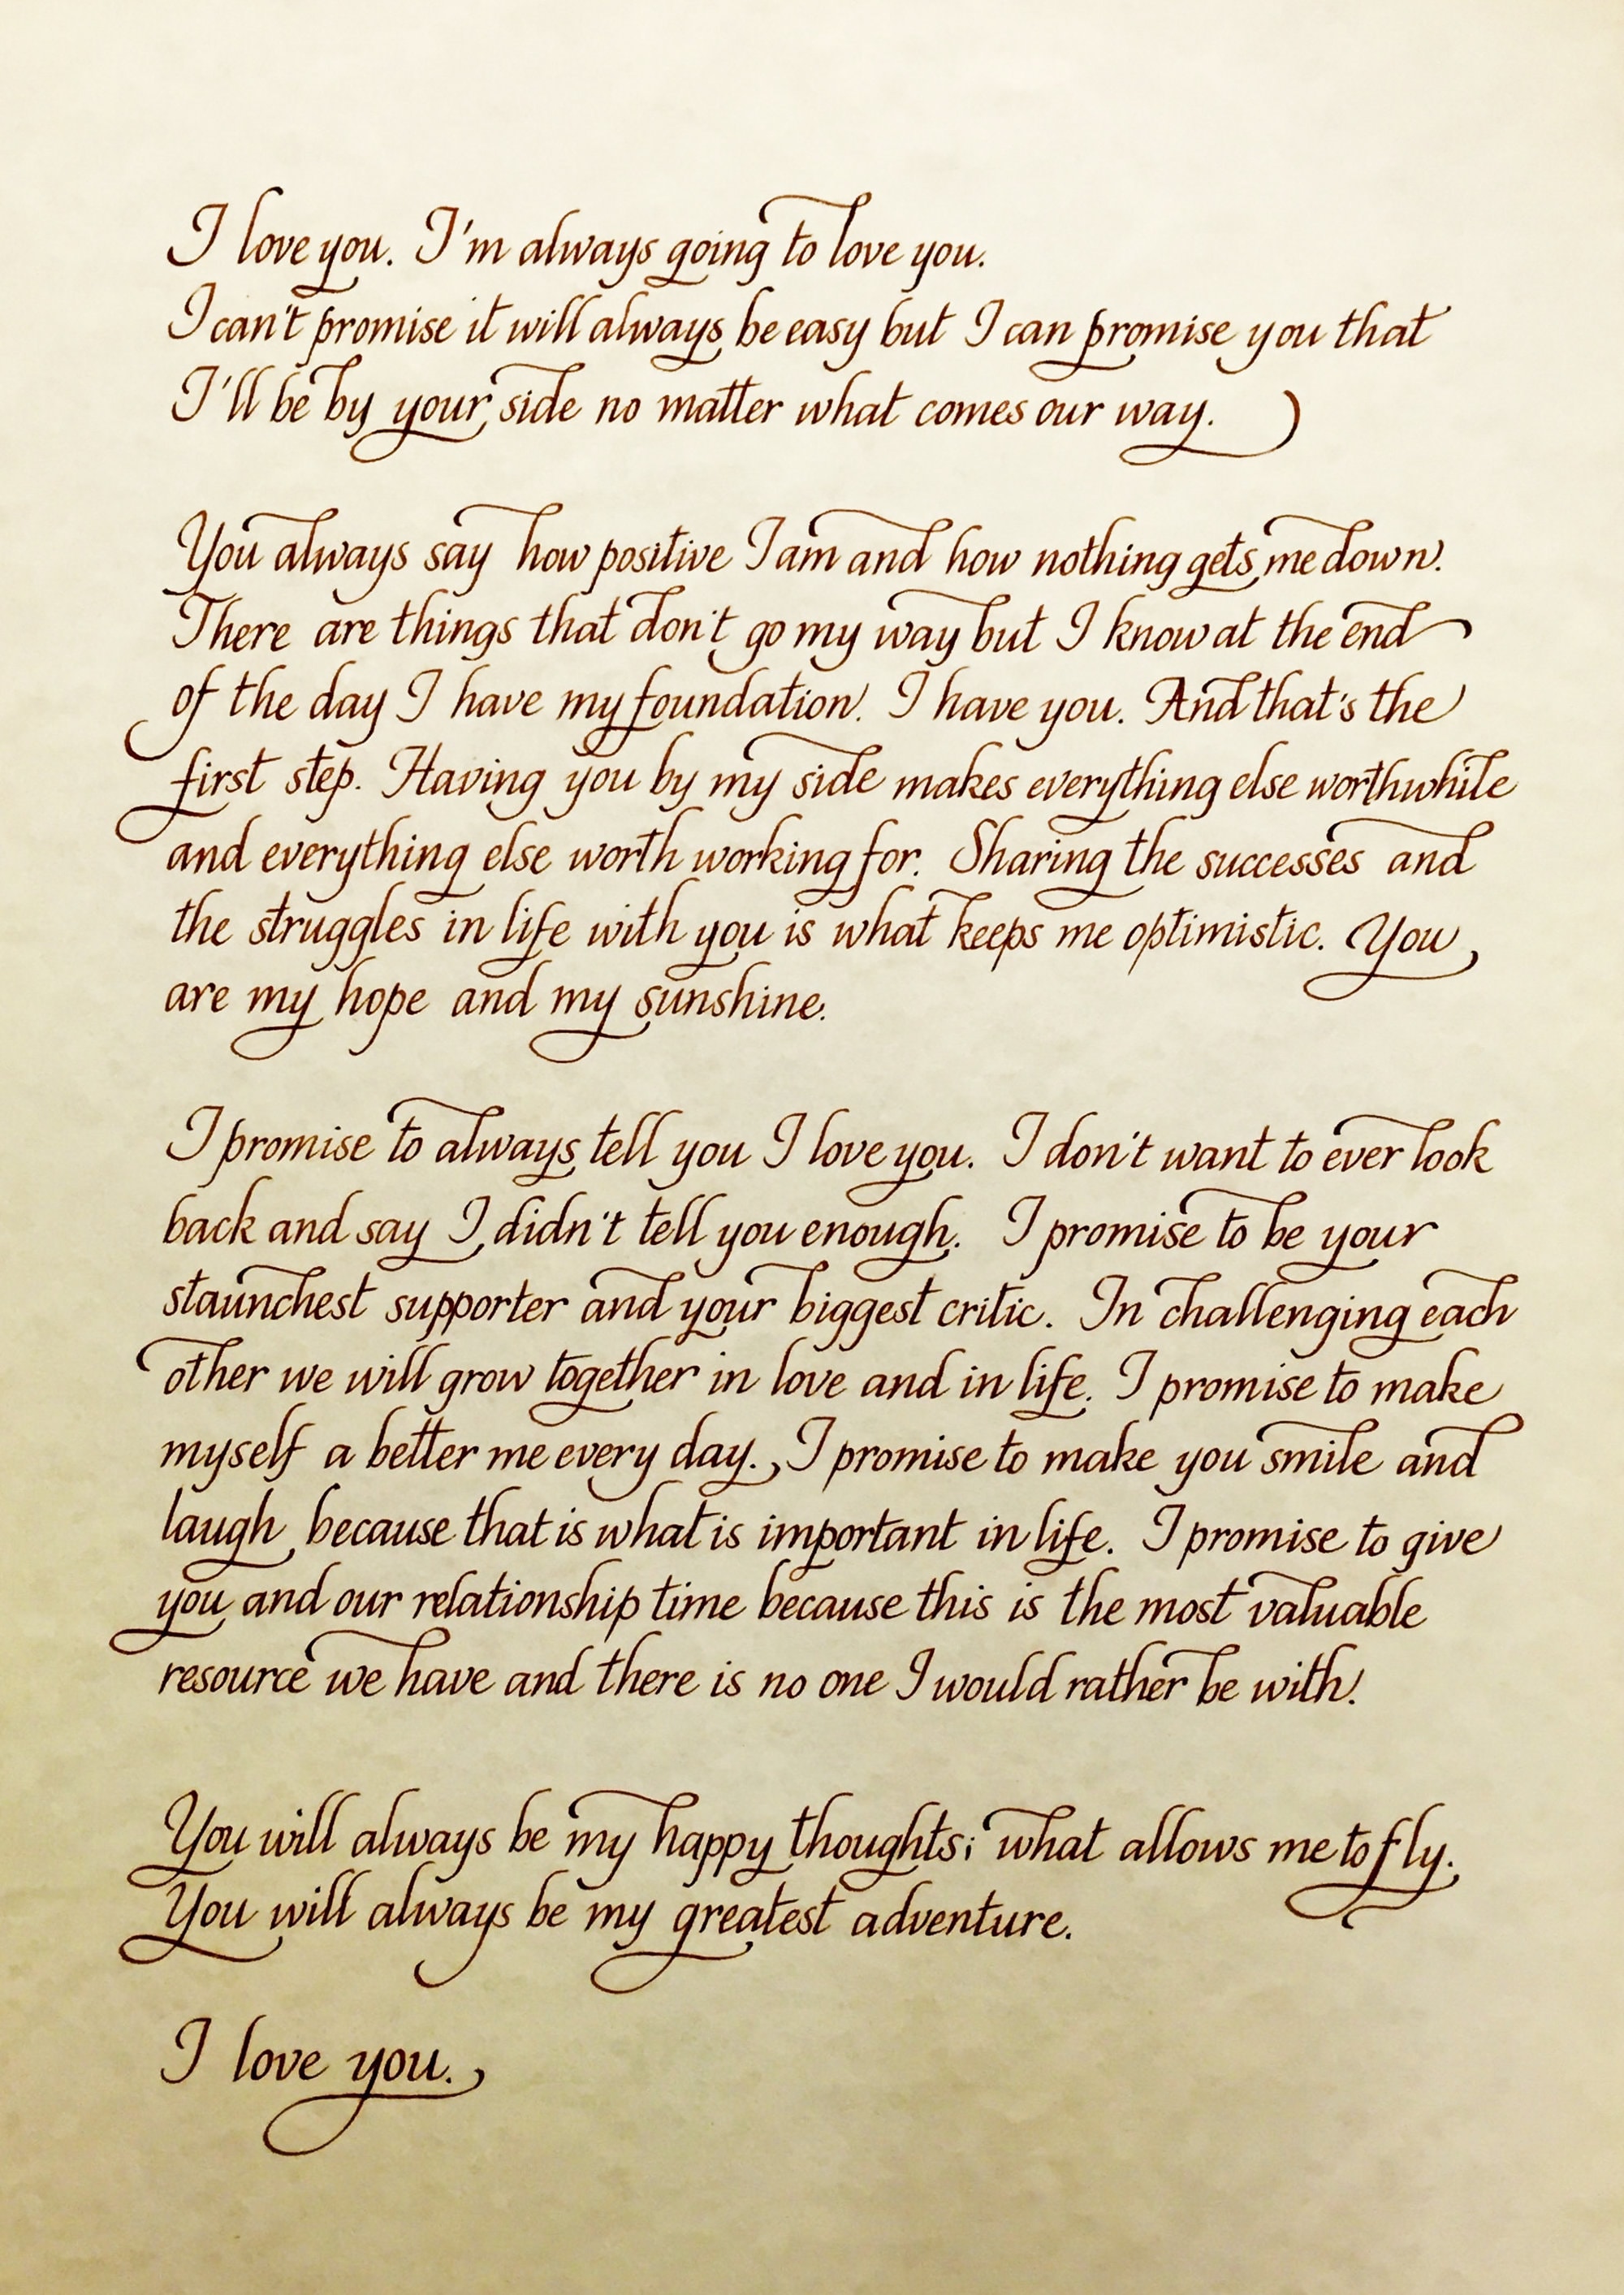 I love you. I'm always going to love you.
I can't promise it will always be easy but I can promise you that
I'll be by your side no matter what comes our way.
You always say how positive I am and how nothing gets me down.
There are things that don't go my way but I know at the end
of the day I have my foundation. I have you. And that's the
first step. Having you by my side makes everything else worthwhile
and everything else worth working for. Sharing the successes and
the struggles in life with you is what keeps me optimistic. You
are my hope and my sunshine.
I promise to always tell you I love you. I don't want to ever look
back and say I didn't tell you enough. I promise to be your
staunchest supporter and your biggest critic. In challenging each
other we will grow together in love and in life. I promise to make
myself a better me every day. I promise to make you smile and
laugh because that is what is important in life. I promise to give
you and our relationship time because this is the most valuable
resource we have and there is no one I would rather be with.
You will always be my happy thoughts; what allows me to fly.
You will always be my greatest adventure.
I love you.